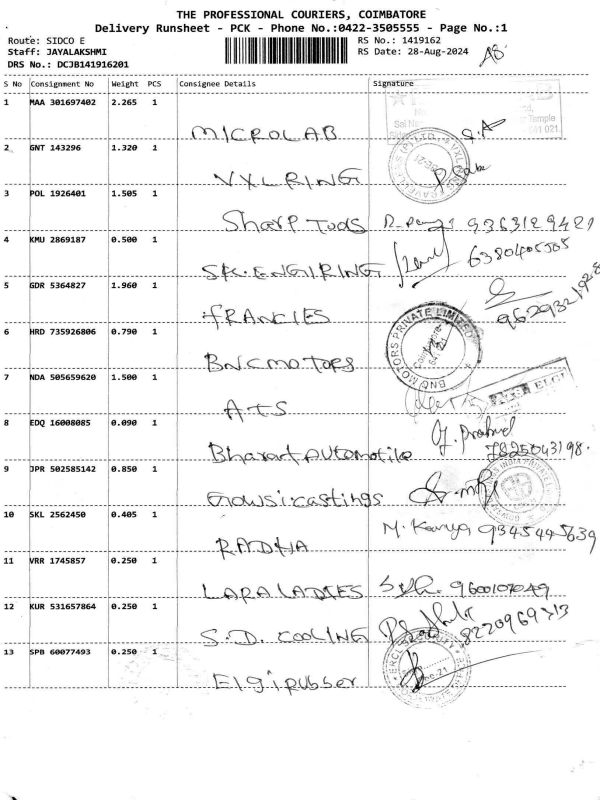 THE PROFESSIONAL COURIERS, COIMBATORE
Delivery Runsheet - PCK - Phone No.:0422-3505555 - Page No.:1
Route: SIDCO E
RS No.: 1419162
Staff: JAYALAKSHMI
RS Date: 28-Aug-2024
DRS No.: DCJB141916201
S No Consignment No Weight PCS Consignee Details Signature
1 MAA 301697402 2.265 1
MICROLAB
2 GNT 143296 1.320 1
VXL RING
3 POL 1926401 1.505 1
Sharp Tools 9363129421
4 KMU 2869187 0.500 1
S.K. ENGIRING 6380405505
5 GDR 5364827 1.960 1
FRANCIES
6 HRD 735926806 0.790 1
BNC MOTORS
BNU MOTORS PRIVATE LIMITED
7 NDA 505659620 1.500 1
ATS
8 EDQ 16008085 0.090 1
Bharart Automotile 7825043198.
9 JPR 502585142 0.850 1
Gowsi.castings
10 SKL 2562450 0.405 1
RADHA M. Kanya 9345445639
11 VRR 1745857 0.250 1
LARA LADIES 9600107049
12 KUR 531657864 0.250 1
S.D. COOLING 8220969313
13 SPB 60077493 0.250 1
Elgi rubber